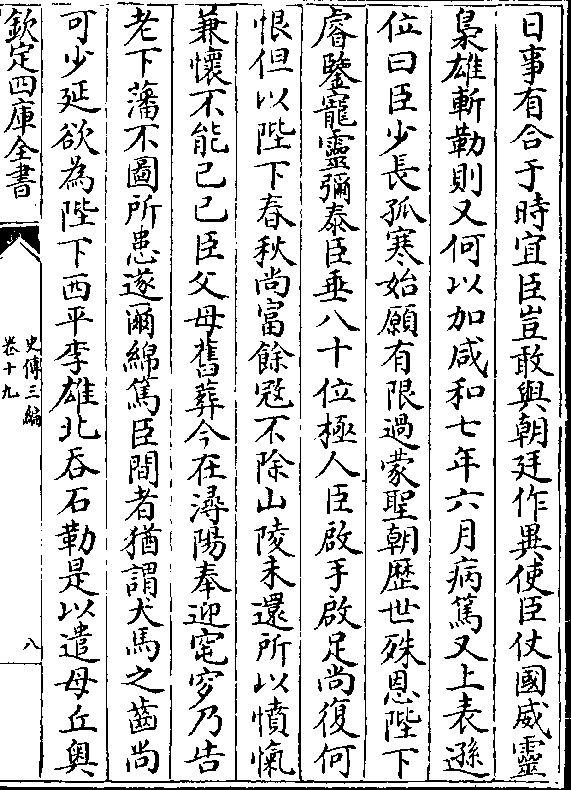 日事有合于時宜臣豈敢與朝廷作異使臣仗國威靈
梟雄斬勒則又何以加咸和七年六月病篤又上表遜
位曰臣少長孤寒始願有限過蒙聖朝歴世殊恩陛下
睿鑒寵靈彌泰臣垂八十位極人臣啟手啟足尚復何
恨但以陛下春秋尚富餘冦不除山陵未還所以憤愾
兼懷不能已已臣父母舊葬今在潯陽奉迎窀穸乃告
老下藩不圖所患遂爾綿篤臣間者猶謂犬馬之齒尚
可少延欲為陛下西平李雄北吞石勒是以遣母丘奥
欽定四庫全書
史傳三編
卷十九
八